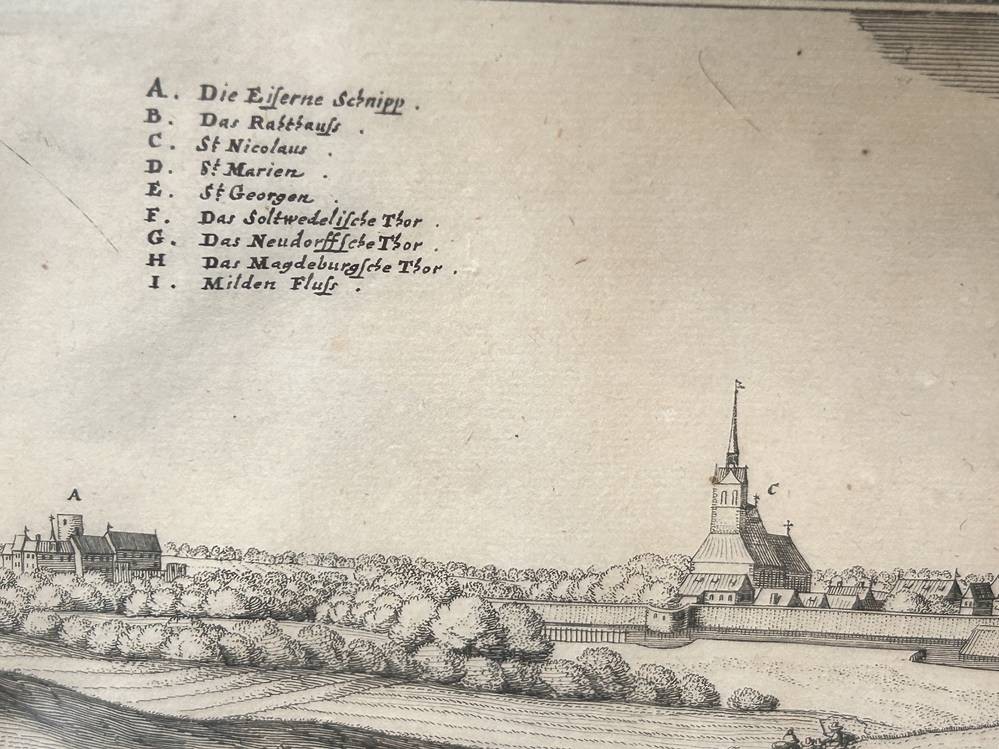 A. Die Eiſerne Schnipp.
B. Das Rahthauſs.
C. St Nicolaus.
D. St Marien.
E. St Georgen.
F. Das Soltwedeliſche Thor.
G. Das Neudorffſche Thor.
H Das Magdeburgſche Thor.
I. Milden Fluſs.
C
A